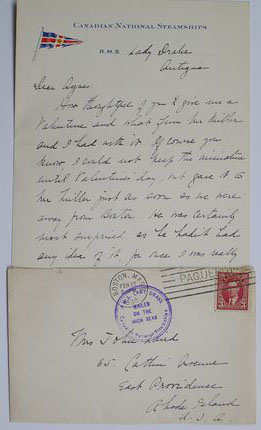 CANADIAN NATIONAL STEAMSHIPS
R.M.S. Lady Drake
Antigua
Dear Agnes
How thoughtful of you to give me a
Valentine and what fun Mr. Miller
and I had with it. Of course you
know I could not keep the miniature
until Valentine's day, but gave it to
Mr. Miller just as soon as we were
away from Boston. He was certainly
most surprised as he hadn't had
any idea of it, for once I was really
BOSTON, MA
FEB 27
PAQUE
R.M.S. LADY DRAKE
MAILED
ON THE
HIGH SEAS
Canadian National Steamships
3
Mrs John Laird
65 Avenue
East Providence
Rhode Island
U.S.A.